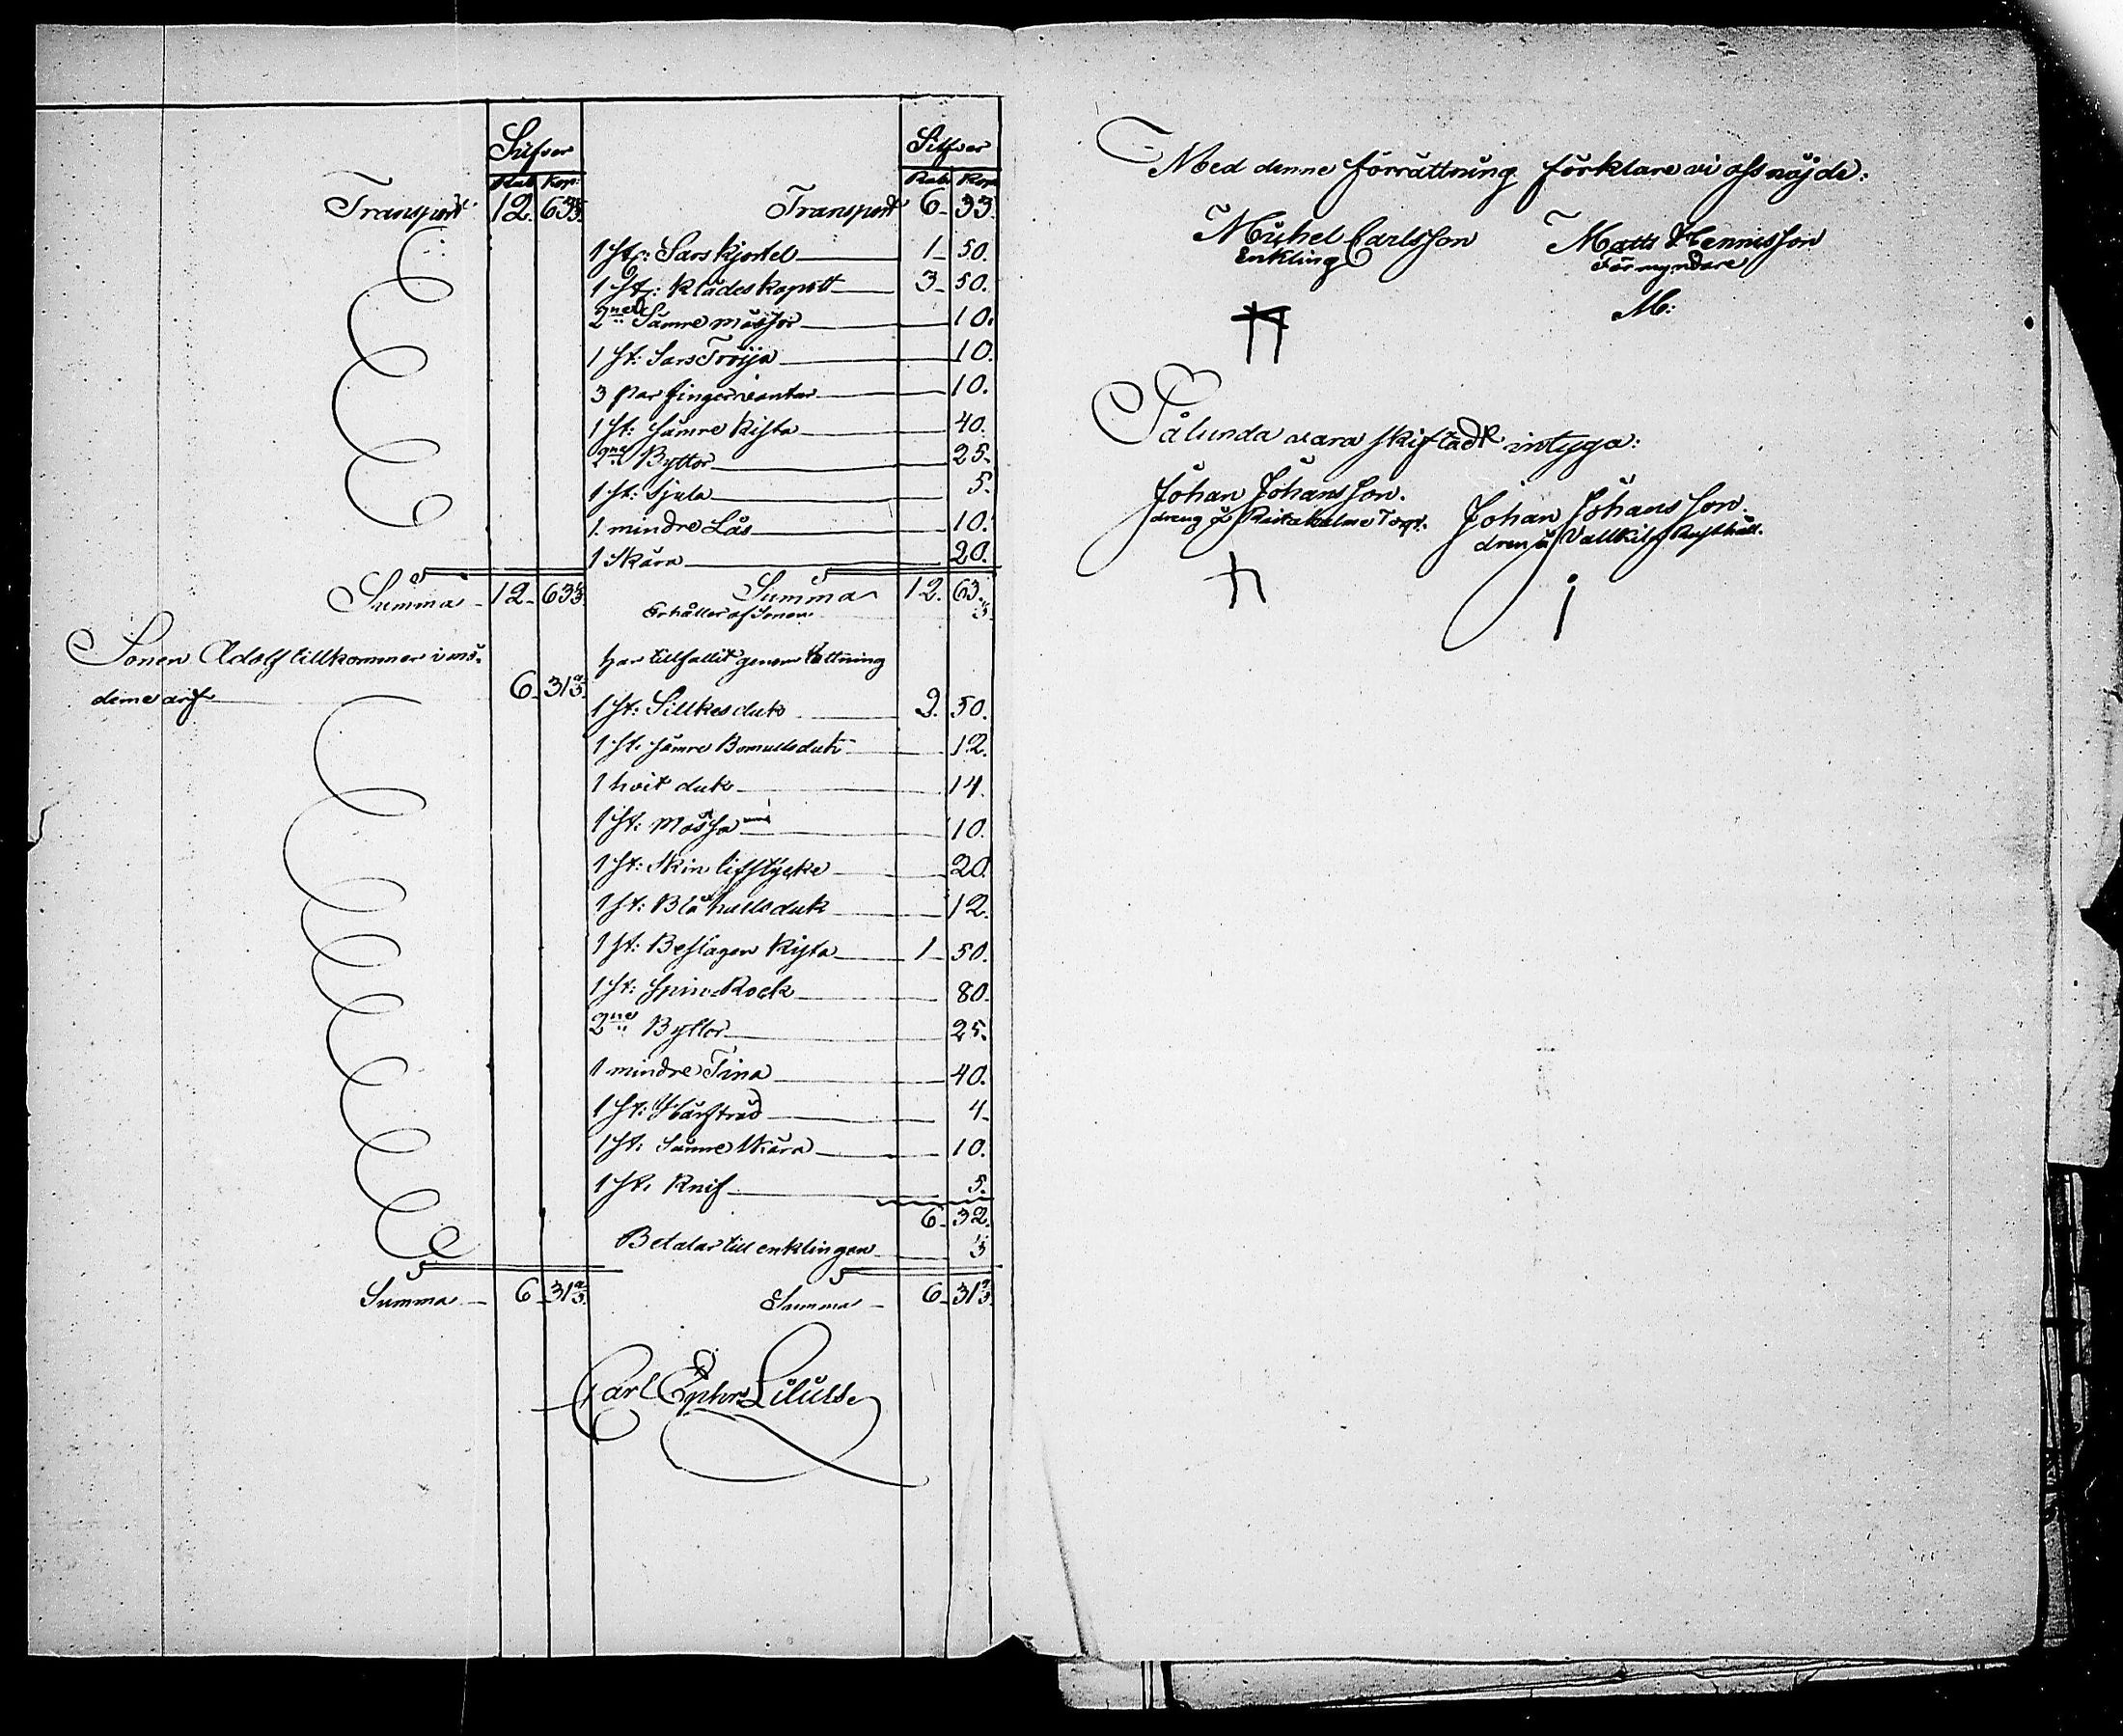 Silfver
Rub. Kop:
Transport 12. 63 1/3.
Summa 12. 63 1/3.
Sonen Adolf tillkommer i mö-
derne arf 6. 31 2/3.
Summa 6. 31 2/3.
Silfver
Rub. Kop.
Transport 6. 33.
1 st: Sars kjortel 1. 50.
1 st: Klädes kapott 3. 50.
2ne Sämre mössor 10.
1 st: Sars Tröija 10.
3 par fingervantar 10.
1 st: sämre Kista 40.
2ne Byttor 25.
1 st: 5.
1 mindre Lås 10.
1 Skära 20.
Summa 12. 63.
Erhåller af Sonen 1/3
har tillfallit genom lottning
1 st: Sillkesduk 2. 50.
1 st. sämre Bomullsduk 12.
1 hvit duk 14.
1 st: mössa 10.
1 st: Skin lifstycke 20.
1 st: Blå halsduk 12.
1 st: Beslagen Kista 1. 50.
1 st: Spin-Rock 80.
2ne Byttor 25.
1 mindre Tina 40.
1 st: 4.
1 st. Sämre skära 10.
1 st. Knif 5.
6. 32.
Betalar till enklingen 1/3
Summa 6. 31 2/3.
Carl
Med denne förrättning förklare vi oss nöjde:
Michel Carlsson Matts Hennisson
Enkling Förmyndare
M:
Sålunda vara skiftadt intyga:
Johan Johansson. Johan Johansson.
dreng å Torp. dren å Rusthåll.